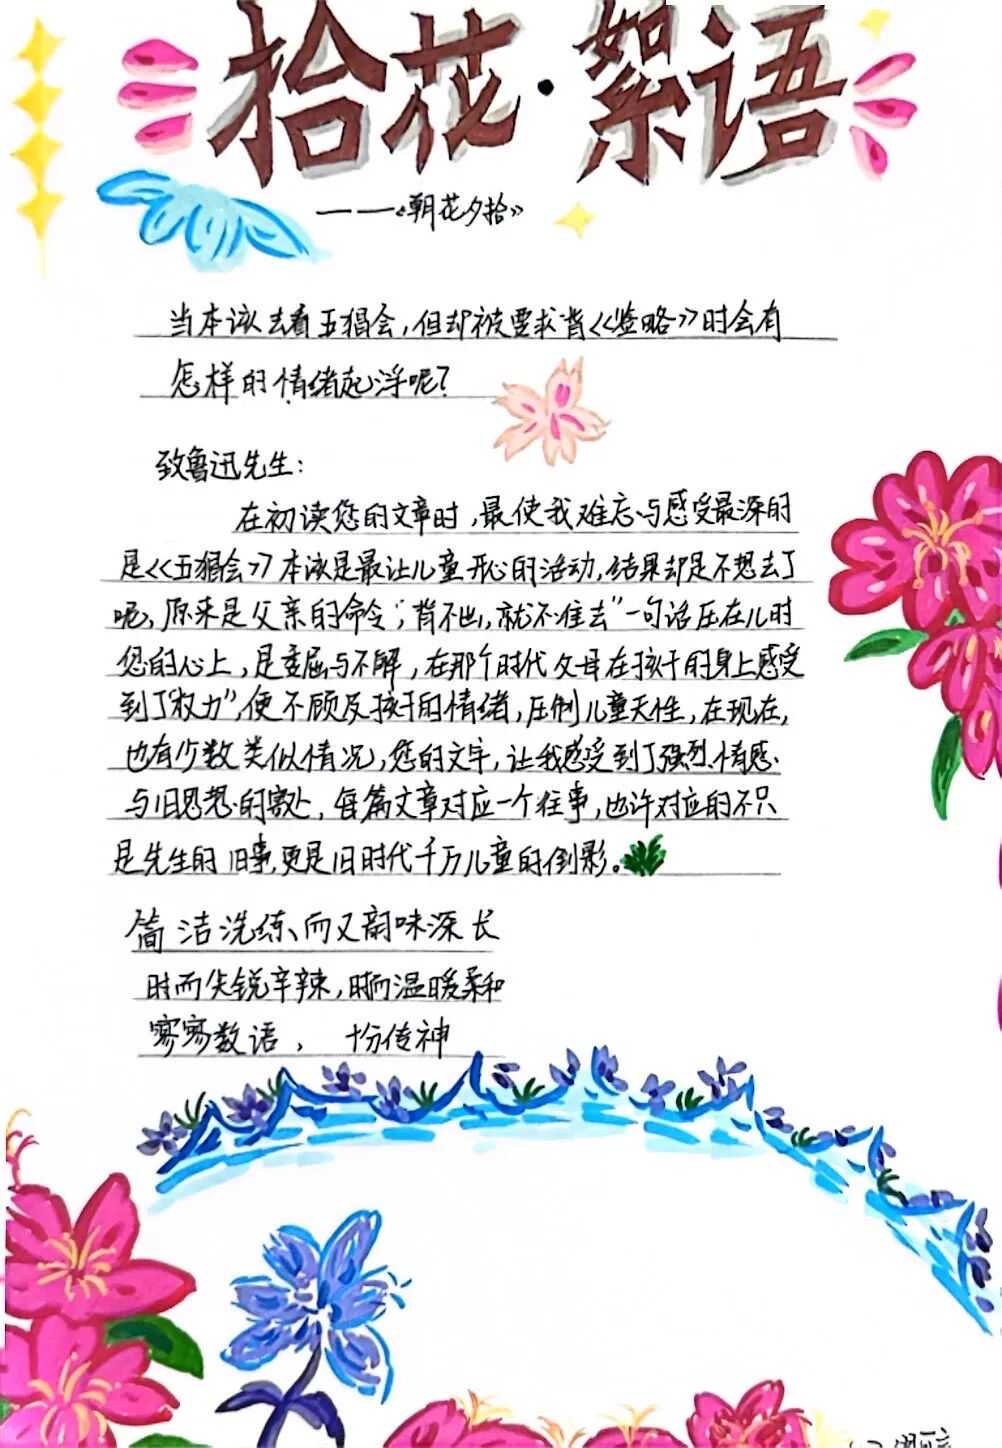 拾花·絮语
——《朝花夕拾》
当本该去看五猖会,但却被要求背《鉴略》时会有
怎样的情绪起浮呢?
致鲁迅先生:
在初读您的文章时,最使我难忘与感受最深的
是《五猖会》本该是最让儿童开心的活动,结果却是不想去了
呢,原来是父亲的命令;背不出,就不准去"一句话压在儿时
您的心上,是委屈与不解,在那个时代父母在孩子的身上感受
到了"权力",便不顾及孩子的情绪,压制儿童天性,在现在,
也有少数类似情况,您的文字,让我感受到了强烈情感
与旧思想的害处,每篇文章对应一个往事,也许对应的不只
是先生的旧事,更是旧时代千万儿童的倒影。
简洁洗练、而又韵味深长
时而尖锐辛辣,时而温暖柔和
寥寥数语, 十分传神